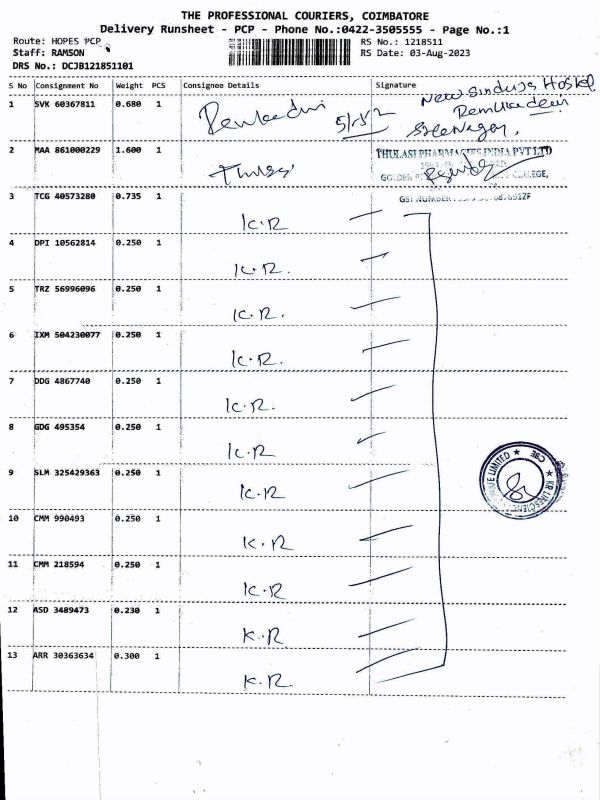 THE PROFESSIONAL COURIERS, COIMBATORE
Delivery Runsheet - PCP - Phone No.:0422-3505555 - Page No.:1
Route: HOPES PCP RS No.: 1218511
Staff: RAMSON RS Date: 03-Aug-2023
DRS No.: DCJB121851101
S No Consignment No Weight PCS Consignee Details Signature
1 SVK 60367811 0.680 1
2 MAA 861000229 1.600 1 THULASI PHARMACIES INDIA PVT LTD
3 TCG 40573280 0.735 1 K.R
4 DPI 10562814 0.250 1 K.R.
5 TRZ 56996096 0.250 1 K.R.
6 IXM 504230077 0.250 1 K.R.
7 DDG 4867740 0.250 1 K.R.
8 GDG 495354 0.250 1 K.R
9 SLM 325429363 0.250 1 K.R
10 CMM 990493 0.250 1 K.R
11 CMM 218594 0.250 1 K.R
12 ASD 3489473 0.230 1 K.R
13 ARR 30363634 0.300 1 K.R.